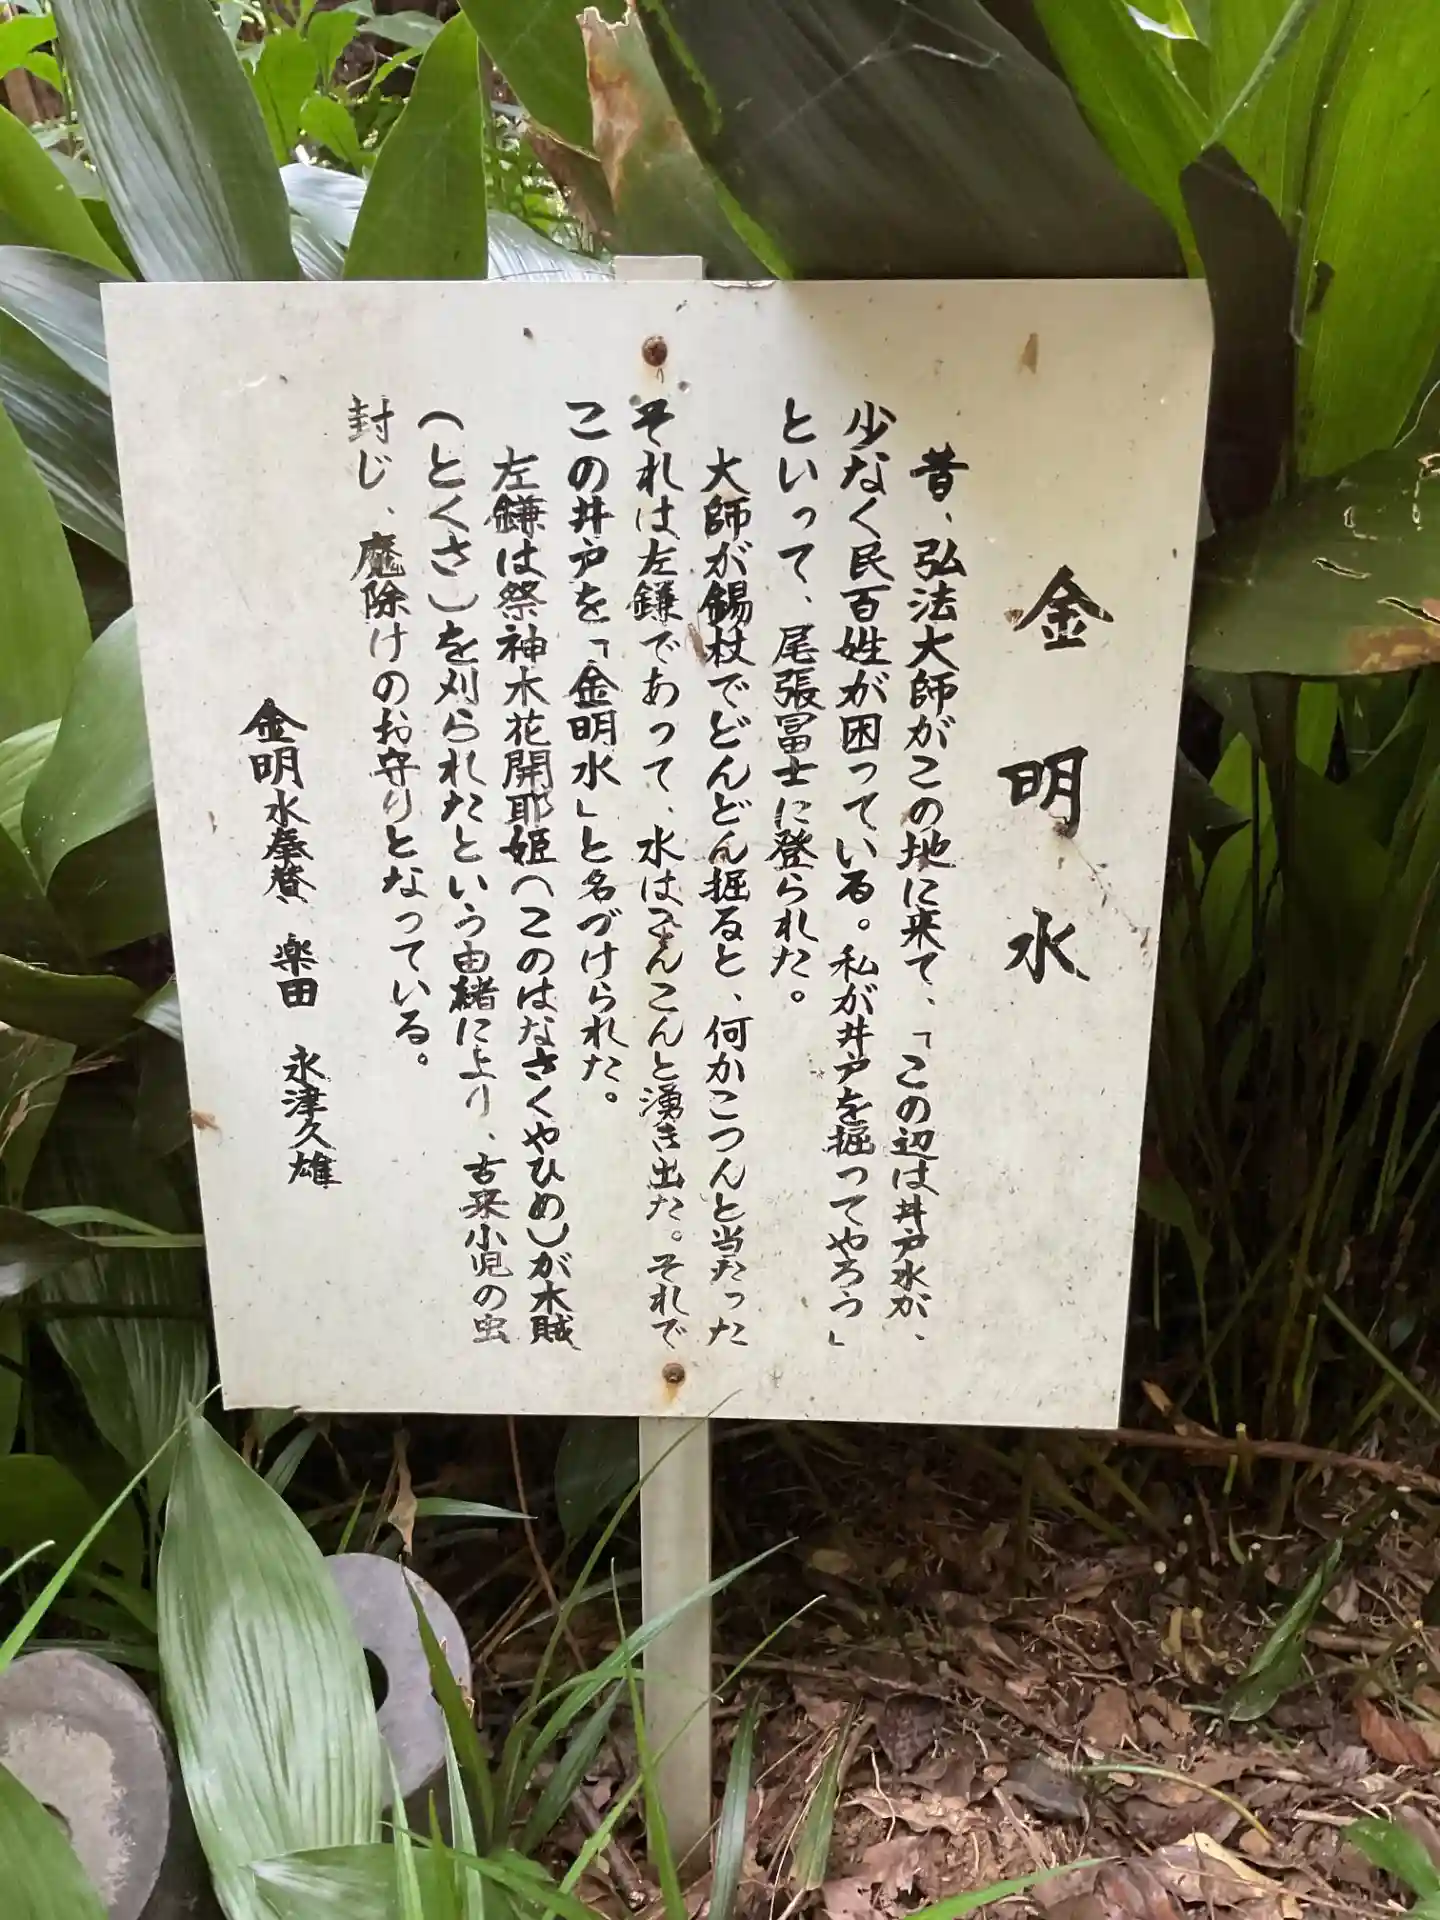 金明水
昔、弘法大師がこの地に来て、「この辺は井戸水が、
少なく民百姓が困っている。私が井戸を掘ってやろう」
といって、尾張冨士に登られた。
大師が錫杖でどんどん掘ると、何かこつんと当たった
それは左鎌であって、水はこんこんと湧き出た。それで
この井戸を「金明水」と名づけられた。
左鎌は祭神木花開耶姫(このはなさくやひめ)が木賊
(とくさ)を刈られたという由緒により、古来小児の虫
封じ、魔除けのお守りとなっている。
金明水奉賛 楽田 永津久雄